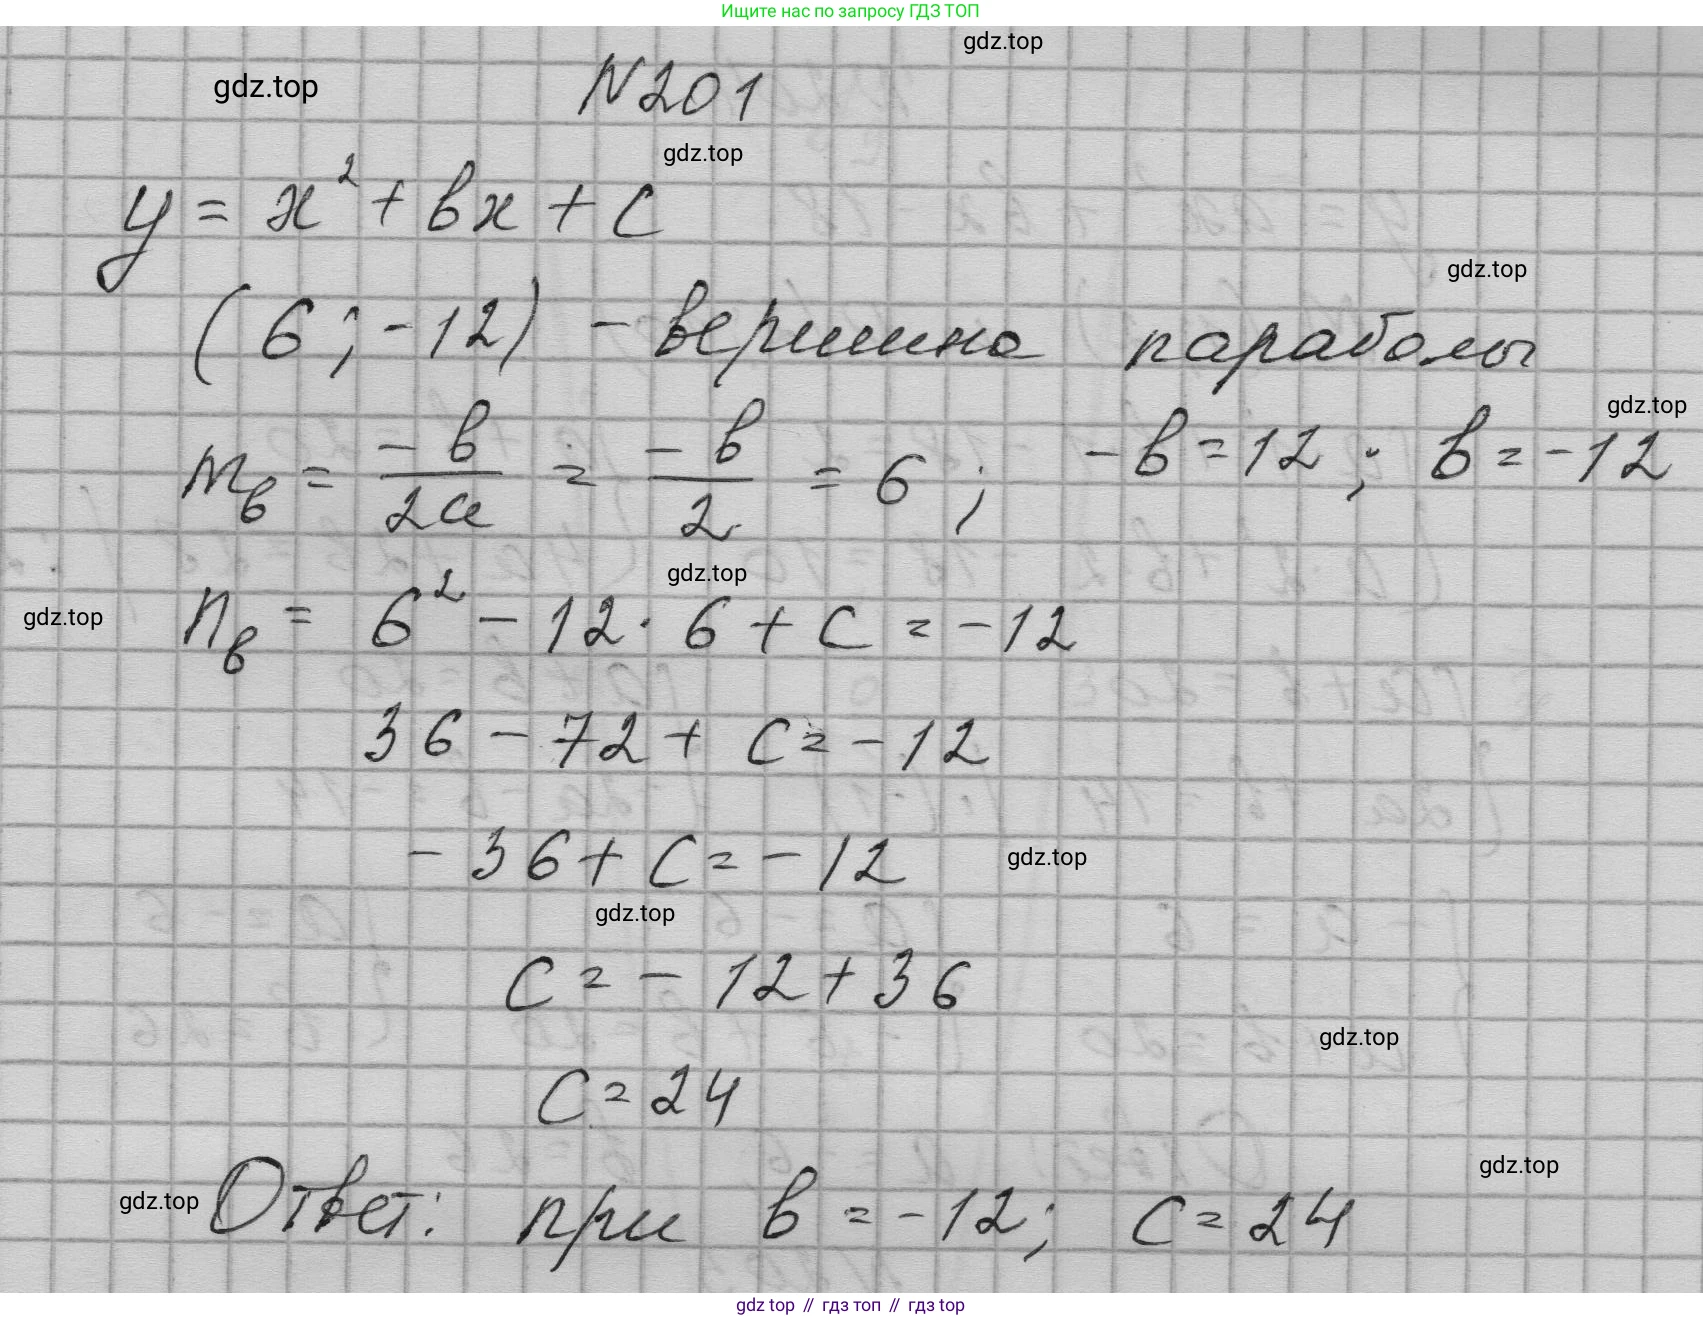 Ищите нас по запросу ГДЗ ТОП
gdz.top
gdz.top
N201
gdz.top
y = x² + bx + c
gdz.top
(6; -12) - вершина параболы
gdz.top
m_b = -b/2a = -b/2 = 6; -b = 12; b = -12
gdz.top
gdz.top
n_b = 6² - 12 · 6 + c = -12
36 - 72 + c = -12
-36 + c = -12
gdz.top
gdz.top
c = -12 + 36
gdz.top
c = 24
gdz.top
gdz.top
Ответ: при b = -12; c = 24
gdz.top // гдз топ // гдз top